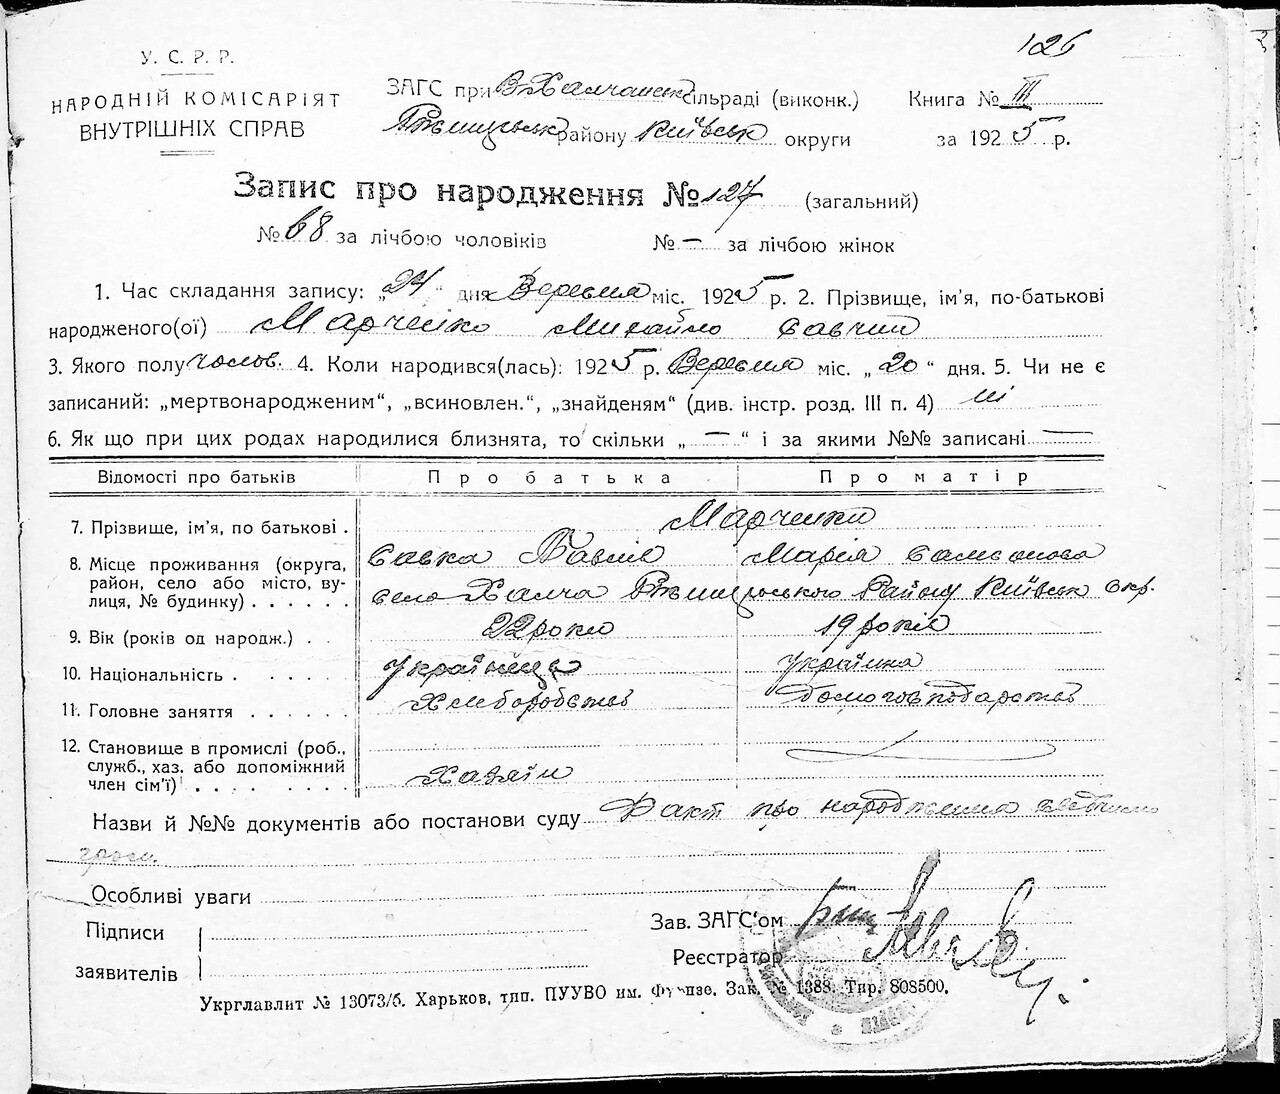 126
У. С. Р. Р.
НАРОДНІЙ КОМІСАРІЯТ
ВНУТРІШНІХ СПРАВ
ЗАГС при В Халчанськ сільраді (виконк.)
Ржищівськ району Київськ округи
Книга № III
за 1925 р.
Запис про народження № 127 (загальний)
№ 68 за лічбою чоловіків № — за лічбою жінок
1. Час складання запису: „24“ дня Вересня міс. 1925 р. 2. Прізвище, ім'я, по-батькові
народженого(ої) Марченко Михайло Савчин
3. Якого полу чолов. 4. Коли народився(лась): 1925 р. Вересня міс. „20“ дня. 5. Чи не є
записаний: „мертвонародженим“, „всиновлен.“, „знайденям“ (див. інстр. розд. III п. 4) ні
6. Як що при цих родах народилися близнята, то скільки „ — “ і за якими №№ записані —
Відомості про батьків Про батька Про матір
7. Прізвище, ім'я, по батькові . Марченки
Савка Павлів Марія Самсонова
8. Місце проживання (округа, район, село або місто, ву-
лиця, № будинку) . . . . . . село Халча Ржищівського Району Київськ окр.
9. Вік (років од народж.) . . 22 роки 19 років
10. Національність . . . . . Українець Українка
11. Головне заняття . . . . . . Хліборобство Домогосподарство
12. Становище в промислі (роб., служб., хаз. або допоміжний
член сім'ї) . . . . . . . . Хазяїн
Назви й №№ документів або постанови суду Факт про народження
Особливі уваги
Підписи
заявителів
Зав. ЗАГС'ом
Реєстратор
Укрглавлит № 13073/б. Харьков, тип. ПУУВО им. Фрунзе. Зак. № 1388. Тир. 808500.